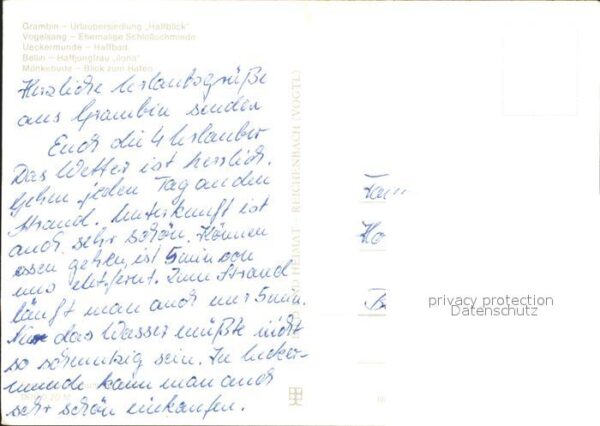 Grambin – Urlaubersiedlung „Haffblick"
Vogelsang – Ehemalige Schloßschmiede
Ueckermünde – Haffbad
Bellin – Haffjungfrau „Ilona"
Mönkebude – Blick zum Hafen
Herzliche Urlaubsgrüße
aus Grambin senden
Euch die 4 Urlauber
Das Wetter ist herrlich.
Gehen jeden Tag an den
Strand. Unterkunft ist
auch sehr schön. Können
essen gehen, ist 5 min von
uns entfernt. Zum Strand
läuft man auch nur 5 min.
Nur das Wasser müßte nicht
so schmutzig sein. In Uecker-
münde kann man auch
sehr schön einkaufen.
BILD UND HEIMAT REICHENBACH (VOGTL)
Fam
Ho
privacy protection
Datenschutz